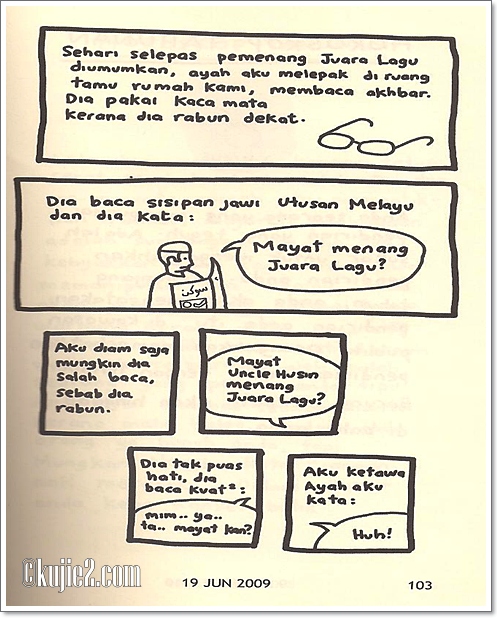 Sehari selepas pemenang Juara Lagu
diumumkan, ayah aku melepak di ruang
tamu rumah kami, membaca akhbar.
Dia pakai kaca mata
kerana dia rabun dekat.
Dia baca sisipan jawi Utusan Melayu
dan dia kata:
Mayat menang
Juara Lagu?
سوكن
Aku diam saja
mungkin dia
salah baca,
sebab dia
rabun.
Mayat
Uncle Husin
menang
Juara Lagu?
Dia tak puas
hati, dia
baca kuat²:
mim.. ya..
ta.. mayat kan?
Aku ketawa
Ayah aku
kata:
Huh!
©kujie2.com
19 JUN 2009
103